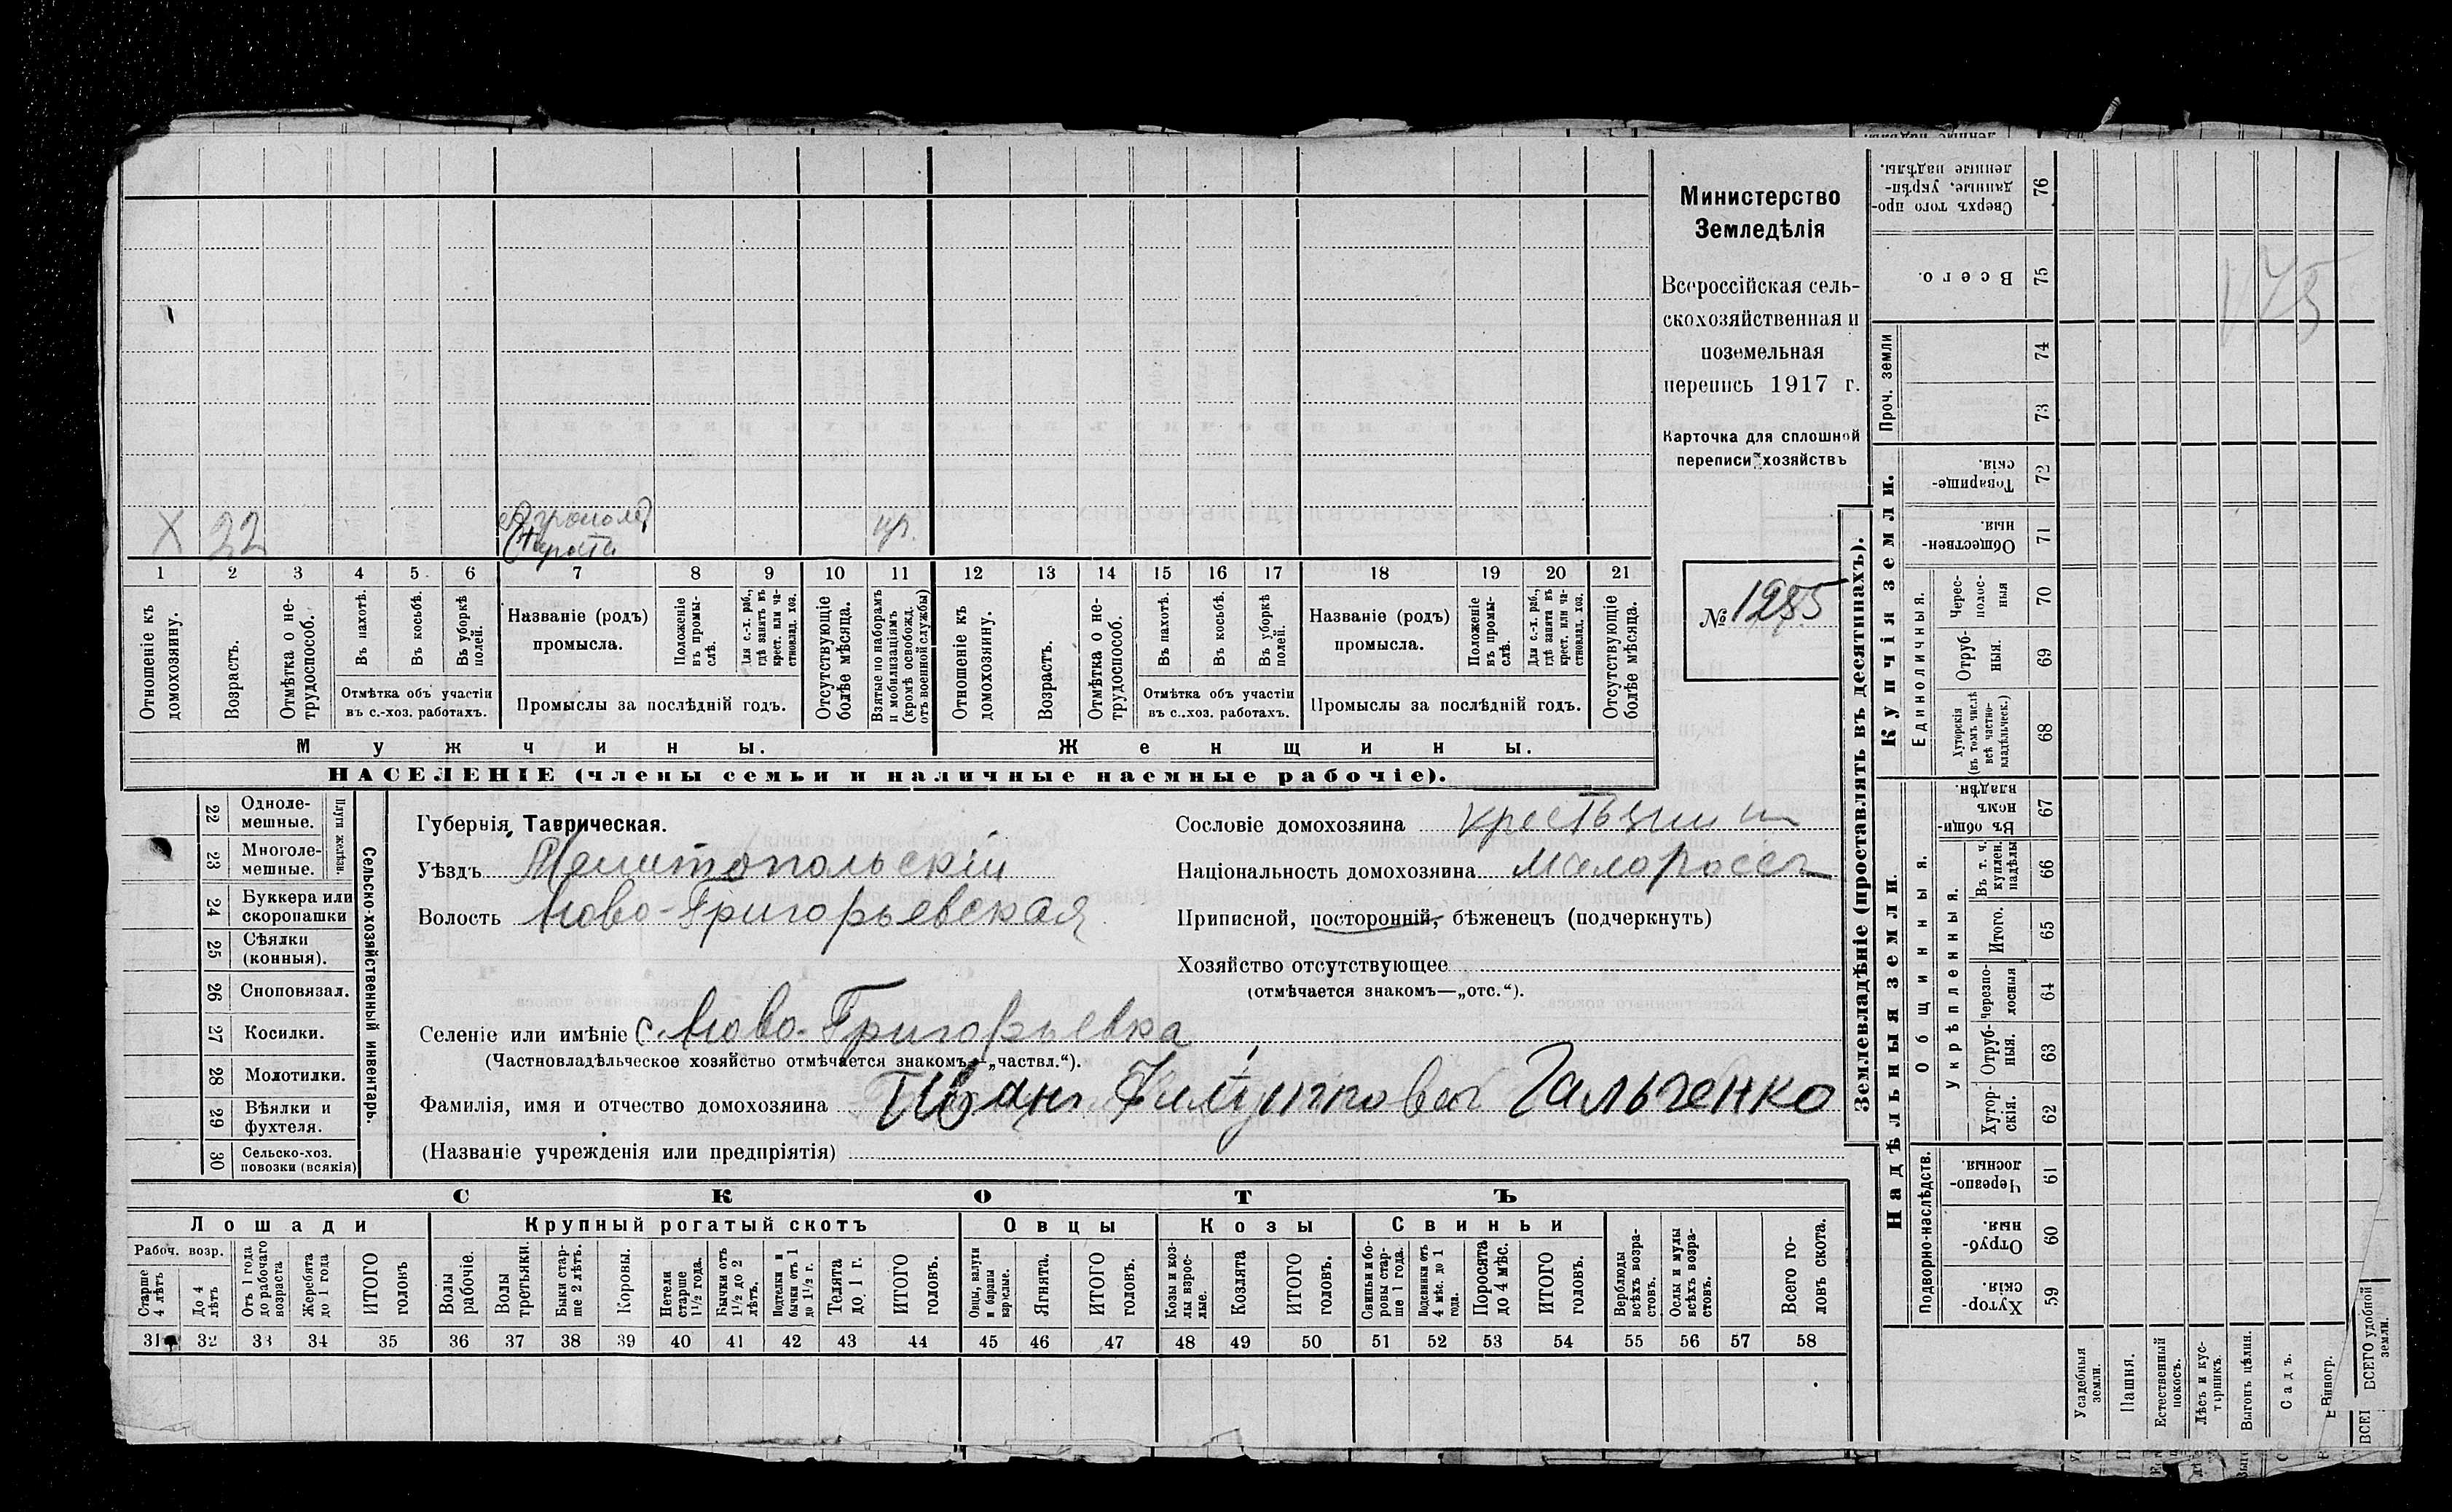 Министерство
Земледѣлія
Всероссійская сель-
скохозяйственная и
поземельная
перепись 1917 г.
Карточка для сплошной
переписи хозяйствъ
№ 1285
Х 22
1 2 3 4 5 6 7 8 9 10 11 12 13 14 15 16 17 18 19 20 21
Отношеніе къ домохозяину.
Возрастъ.
Отмѣтка о не-трудоспособ.
Въ пахотѣ.
Въ косьбѣ.
Въ уборкѣ полей.
Отмѣтка объ участіи
въ с.-хоз. работахъ.
Названіе (родъ)
промысла.
Положеніе въ промы-слѣ.
Для с.-х. раб., гдѣ занятъ въ крест. или ча-стновлад. хоз.
Промыслы за послѣдній годъ.
Отсутствующіе болѣе мѣсяца.
Взятые по наборамъ и мобилизаціямъ (кромѣ освобожд. отъ военной службы)
Отношеніе къ домохозяину.
Возрастъ.
Отмѣтка о не-трудоспособ.
Въ пахотѣ.
Въ косьбѣ.
Въ уборкѣ полей.
Отмѣтка объ участіи
въ с.-хоз. работахъ.
Названіе (родъ)
промысла.
Положеніе въ промы-слѣ.
Для с.-х. раб., гдѣ занята въ крест. или ча-стновлад. хоз.
Промыслы за послѣдній годъ.
Отсутствующіе болѣе мѣсяца.
Мужчины.
Женщины.
НАСЕЛЕНІЕ (члены семьи и наличные наемные рабочіе).
Сельско-хозяйственный инвентарь.
Плуги желѣзн.
22 Одноле-мешные.
23 Многоле-мешные.
24 Буккера или скоропашки
25 Сѣялки (конныя).
26 Сноповязал.
27 Косилки.
28 Молотилки.
29 Вѣялки и фухтеля.
30 Сельско-хоз. повозки (всякія)
Губернія, Таврическая.
Уѣздъ Мелитопольскій
Волость Ново-Григорьевская
Селеніе или имѣніе с. Ново-Григорьевка
(Частновладѣльческое хозяйство отмѣчается знакомъ—„частвл.“).
Фамилія, имя и отчество домохозяина Иванъ Филипповъ Гальченко
(Названіе учрежденія или предпріятія)
Сословіе домохозяина крестьянин
Національность домохозяина малороссъ
Приписной, посторонній, бѣженецъ (подчеркнуть)
Хозяйство отсутствующее
(отмѣчается знакомъ—„отс.“).
СКОТЪ
Лошади
Крупный рогатый скотъ
Овцы
Козы
Свиньи
Рабоч. возр.
Старше 4 лѣтъ
До 4 лѣтъ
Отъ 1 года до рабочаго возраста
Жеребята до 1 года
ИТОГО головъ
Волы рабочіе.
Волы третьяки.
Быки стар-ше 2 лѣтъ.
Коровы.
Нетели старше 1½ года.
Бычки отъ 1½ до 2 лѣтъ.
Подтелки и бычки отъ 1 до 1½ г.
Телята до 1 г.
ИТОГО головъ.
Овцы, валухи и бараны взрослые.
Ягнята.
ИТОГО головъ.
Козы и коз-лы взрос-лые.
Козлята
ИТОГО головъ.
Свиньи и бо-ровы стар-ше 1 года.
Подсвинки отъ 4 мѣс. до 1 года.
Поросята до 4 мѣс.
ИТОГО головъ.
Верблюды всѣхъ возра-стовъ.
Ослы и мулы всѣхъ возра-стовъ.
Всего го-ловъ скота.
31 32 33 34 35 36 37 38 39 40 41 42 43 44 45 46 47 48 49 50 51 52 53 54 55 56 57 58
Землевладѣніе (проставлять въ десятинахъ).
Купчія земли.
Надѣльныя земли.
76 Сверхъ того про-данные, укрѣп-ленные надѣлы.
75 Всего.
Проч. земли
74
73
72 Товарище-скія.
71 Обществен-ныя.
Единоличныя.
70 Черес-полос-ныя
69 Отруб-ныя.
68 Хуторскія (въ томъ числѣ всѣ частно-владѣльческ.)
Общинныя.
67 Въ общи-номъ владѣн.
Укрѣпленныя.
66 Въ т. ч. куплен. надѣлы
65 Итого.
64 черезпо-лосныя
63 Отруб-ныя.
62 Хутор-скія.
Подворно-наслѣдств.
61 Черезпо-лосныя.
60 Отруб-ныя.
59 Хутор-скія.
Усадебныя земли.
Пашня.
Естественный покосъ.
Лѣсъ и кус-тарникъ.
Выгонъ цѣлин.
Садъ.
Виногр.
ВСЕГО удобной земли.